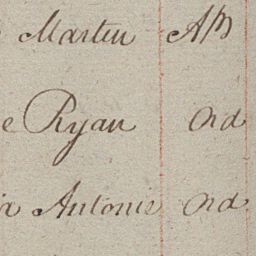 Martin Ab
e Ryan Ord
Antonio Ord